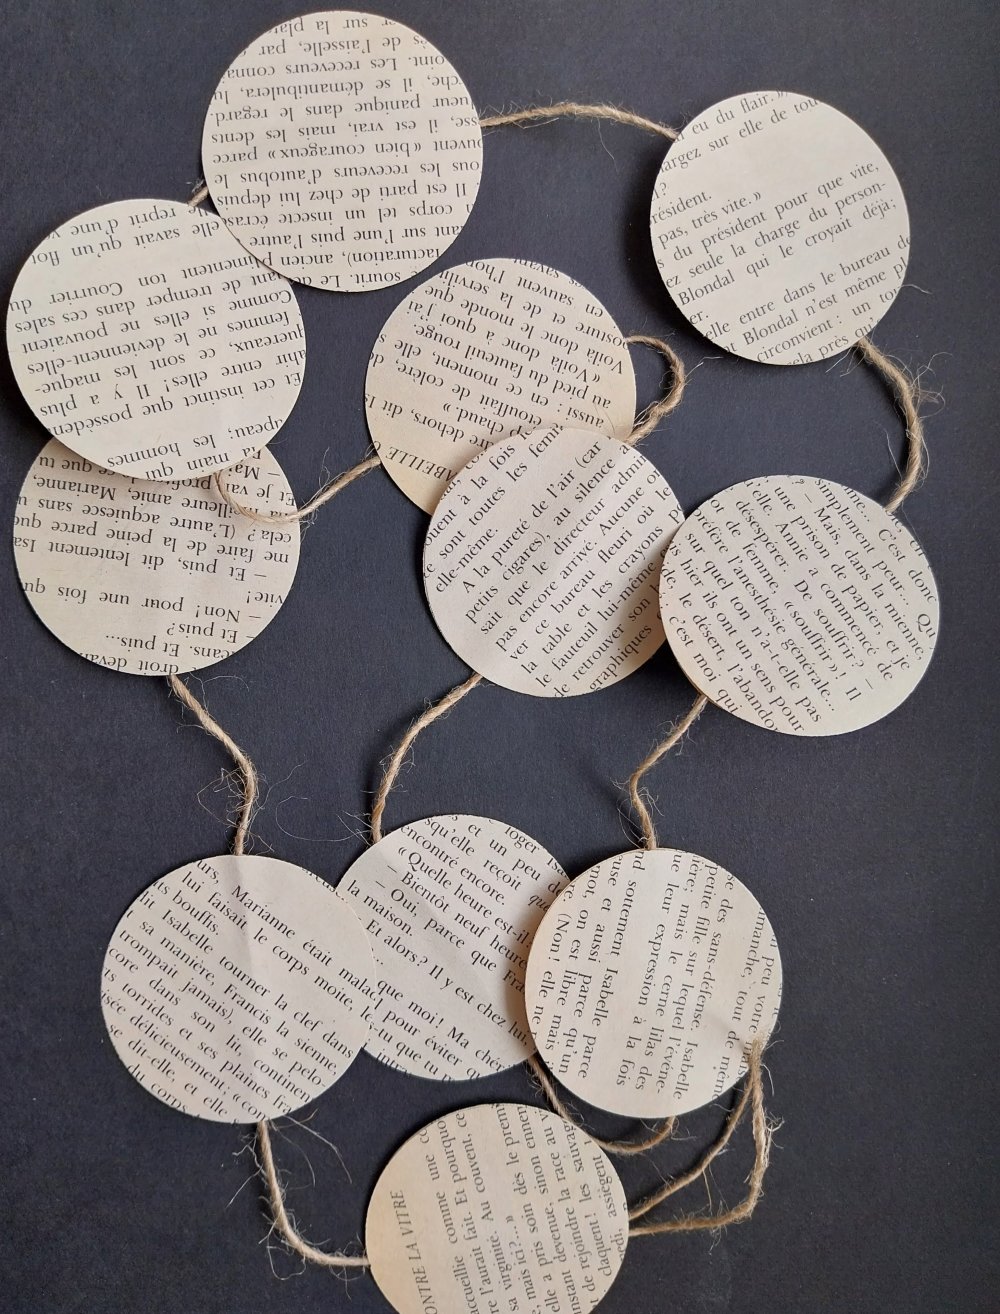 er sur la plat
de l'aisselle, par
oint. Les receveurs conna
rche, il se démantibulera,
ueur panique dans le regard.
sse, il est vrai, mais les dents
ouvent « bien courageux » parce
ous les receveurs d'autobus
Il est parti de chez lui depuis
corps tel un insecte écrasé
tant sur l'une puis l'autre
facturation), ancien
sourit. Le
eu du flair. »
argez sur elle de tou
l?
résident.
pas, très vite. »
s du président pour que vite,
ez seule la charge du person-
Blondal qui le croyait déjà:
er.
elle entre dans le bureau de
t Blondal n'est même p
circonvient : un tou
ela près qu
upeau; les hommes
main qu
Et cet instinct que possèden
ahir entre elles! Il y a plus
quereaux, ce sont les maque-
femmes ne le deviennent-elles
Comme si elles ne pouvaient
tant de tremper dans ces sales
pliment ton Courrier du
elle savait qu'un flo
reprit d'une
savent l'ho
en sauvent
osture et de la servili
Voilà donc le monde que
« Voilà donc à quoi j'ai
au pied du fauteuil rouge.
aussi : en ce moment, elle
étouffait de colère,
chaud. »
dre dehors, dit Is
ABEILLE
droit devan
cans. Et puis...
— Et puis?
— Non! pour une fois qu
vite!
— Et puis, dit lentement Isa
me faire de la peine parce que
cela? (L'autre acquiesce sans
eilleure amie, Marianne,
Et je vai
— Mai
profi
ce que tu
ment à la fois
e sont toutes les femm
elle-même.
A la pureté de l'air (car
petits cigares), au silence
sait que le directeur admin
pas encore arrivé. Aucune on
ver ce bureau fleuri où le
la table et les crayons
fauteuil lui-même
de retrouver son
graphiques
C'est donc
implement peur... Qu
— Mais, dans la mienne,
une prison de papier, et je
elle. Annie a commencé de
désespérer. De souffrir? —
ot de femme, « souffrir »! Il
préfère l'anesthésie générale...
sur quel ton n'a-t-elle pas
hier, ils ont un sens pour
de, le désert, l'abando
c'est moi qui
urs, Marianne était malad
lui faisait le corps moite, l
its bouffis.
it Isabelle tourner la clef dans
sa manière, Francis la sienne,
trompait jamais), elle se pelo-
core dans son lit, continen
rs torrides et ses plaines fra
isée délicieusement: « con
se dit-elle, et elle
du corps
s et un peu de
loger Isa
squ'elle reçoit que
encontré encore.
« Quelle heure est-il?
— Bientôt neuf heure
— Oui, parce que Fra
la maison.
Et alors? Il y est chez lui,
que moi! Ma chér
pour éviter q
s-tu que tu n
intra
peu votre
manche, tout de mêm
se des sans-défense. Isabelle
petite fille sur lequel l'événe-
ière; mais le cerne lilas des
ue leur expression à la fois
nd sottement Isabelle parce
use et aussi parce qu'un
mot on est libre mais
re (Non! elle ne
ONTRE LA VITRE
accueillie comme une co
re l'aurait fait. Et pourquo
sa virginité. Au couvent, ce
, mais ici?... »
elle a pris soin dès le prem
e devenue, sinon ennem
instant rejoindre la race au v
r de claquent! les sauvag
edi, assiègent